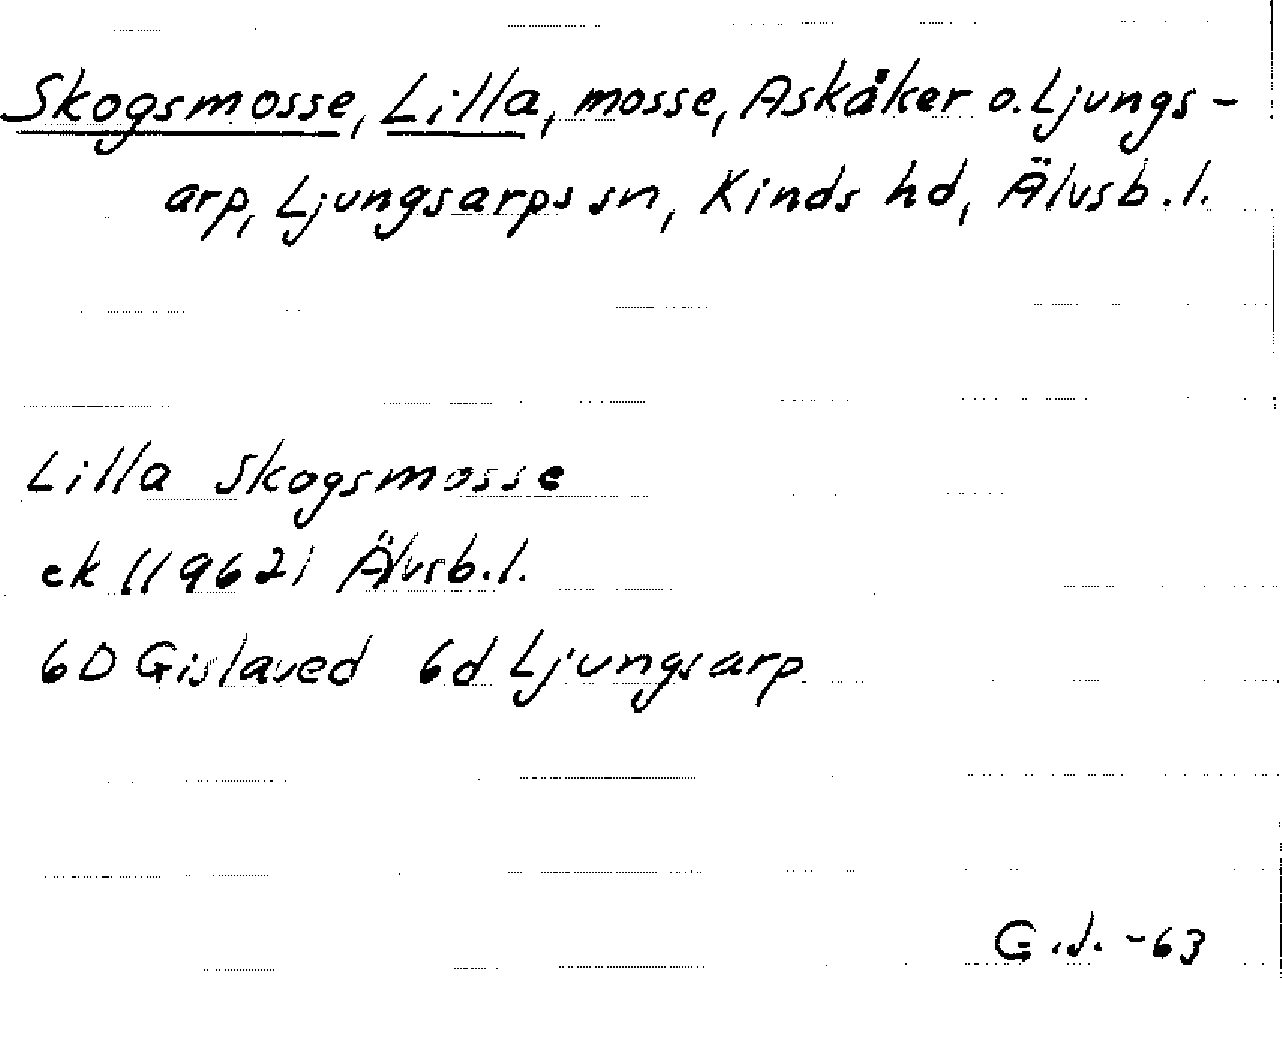 Skogsmosse, Lilla, mosse, Askåker o. Ljungs-
arp, Ljungsarps sn, Kinds hd, Älvsb. l.
Lilla Skogsmosse
ek 119621 Älvsb. l.
6D Gislaved 6d Ljungsarp
G.J. -63